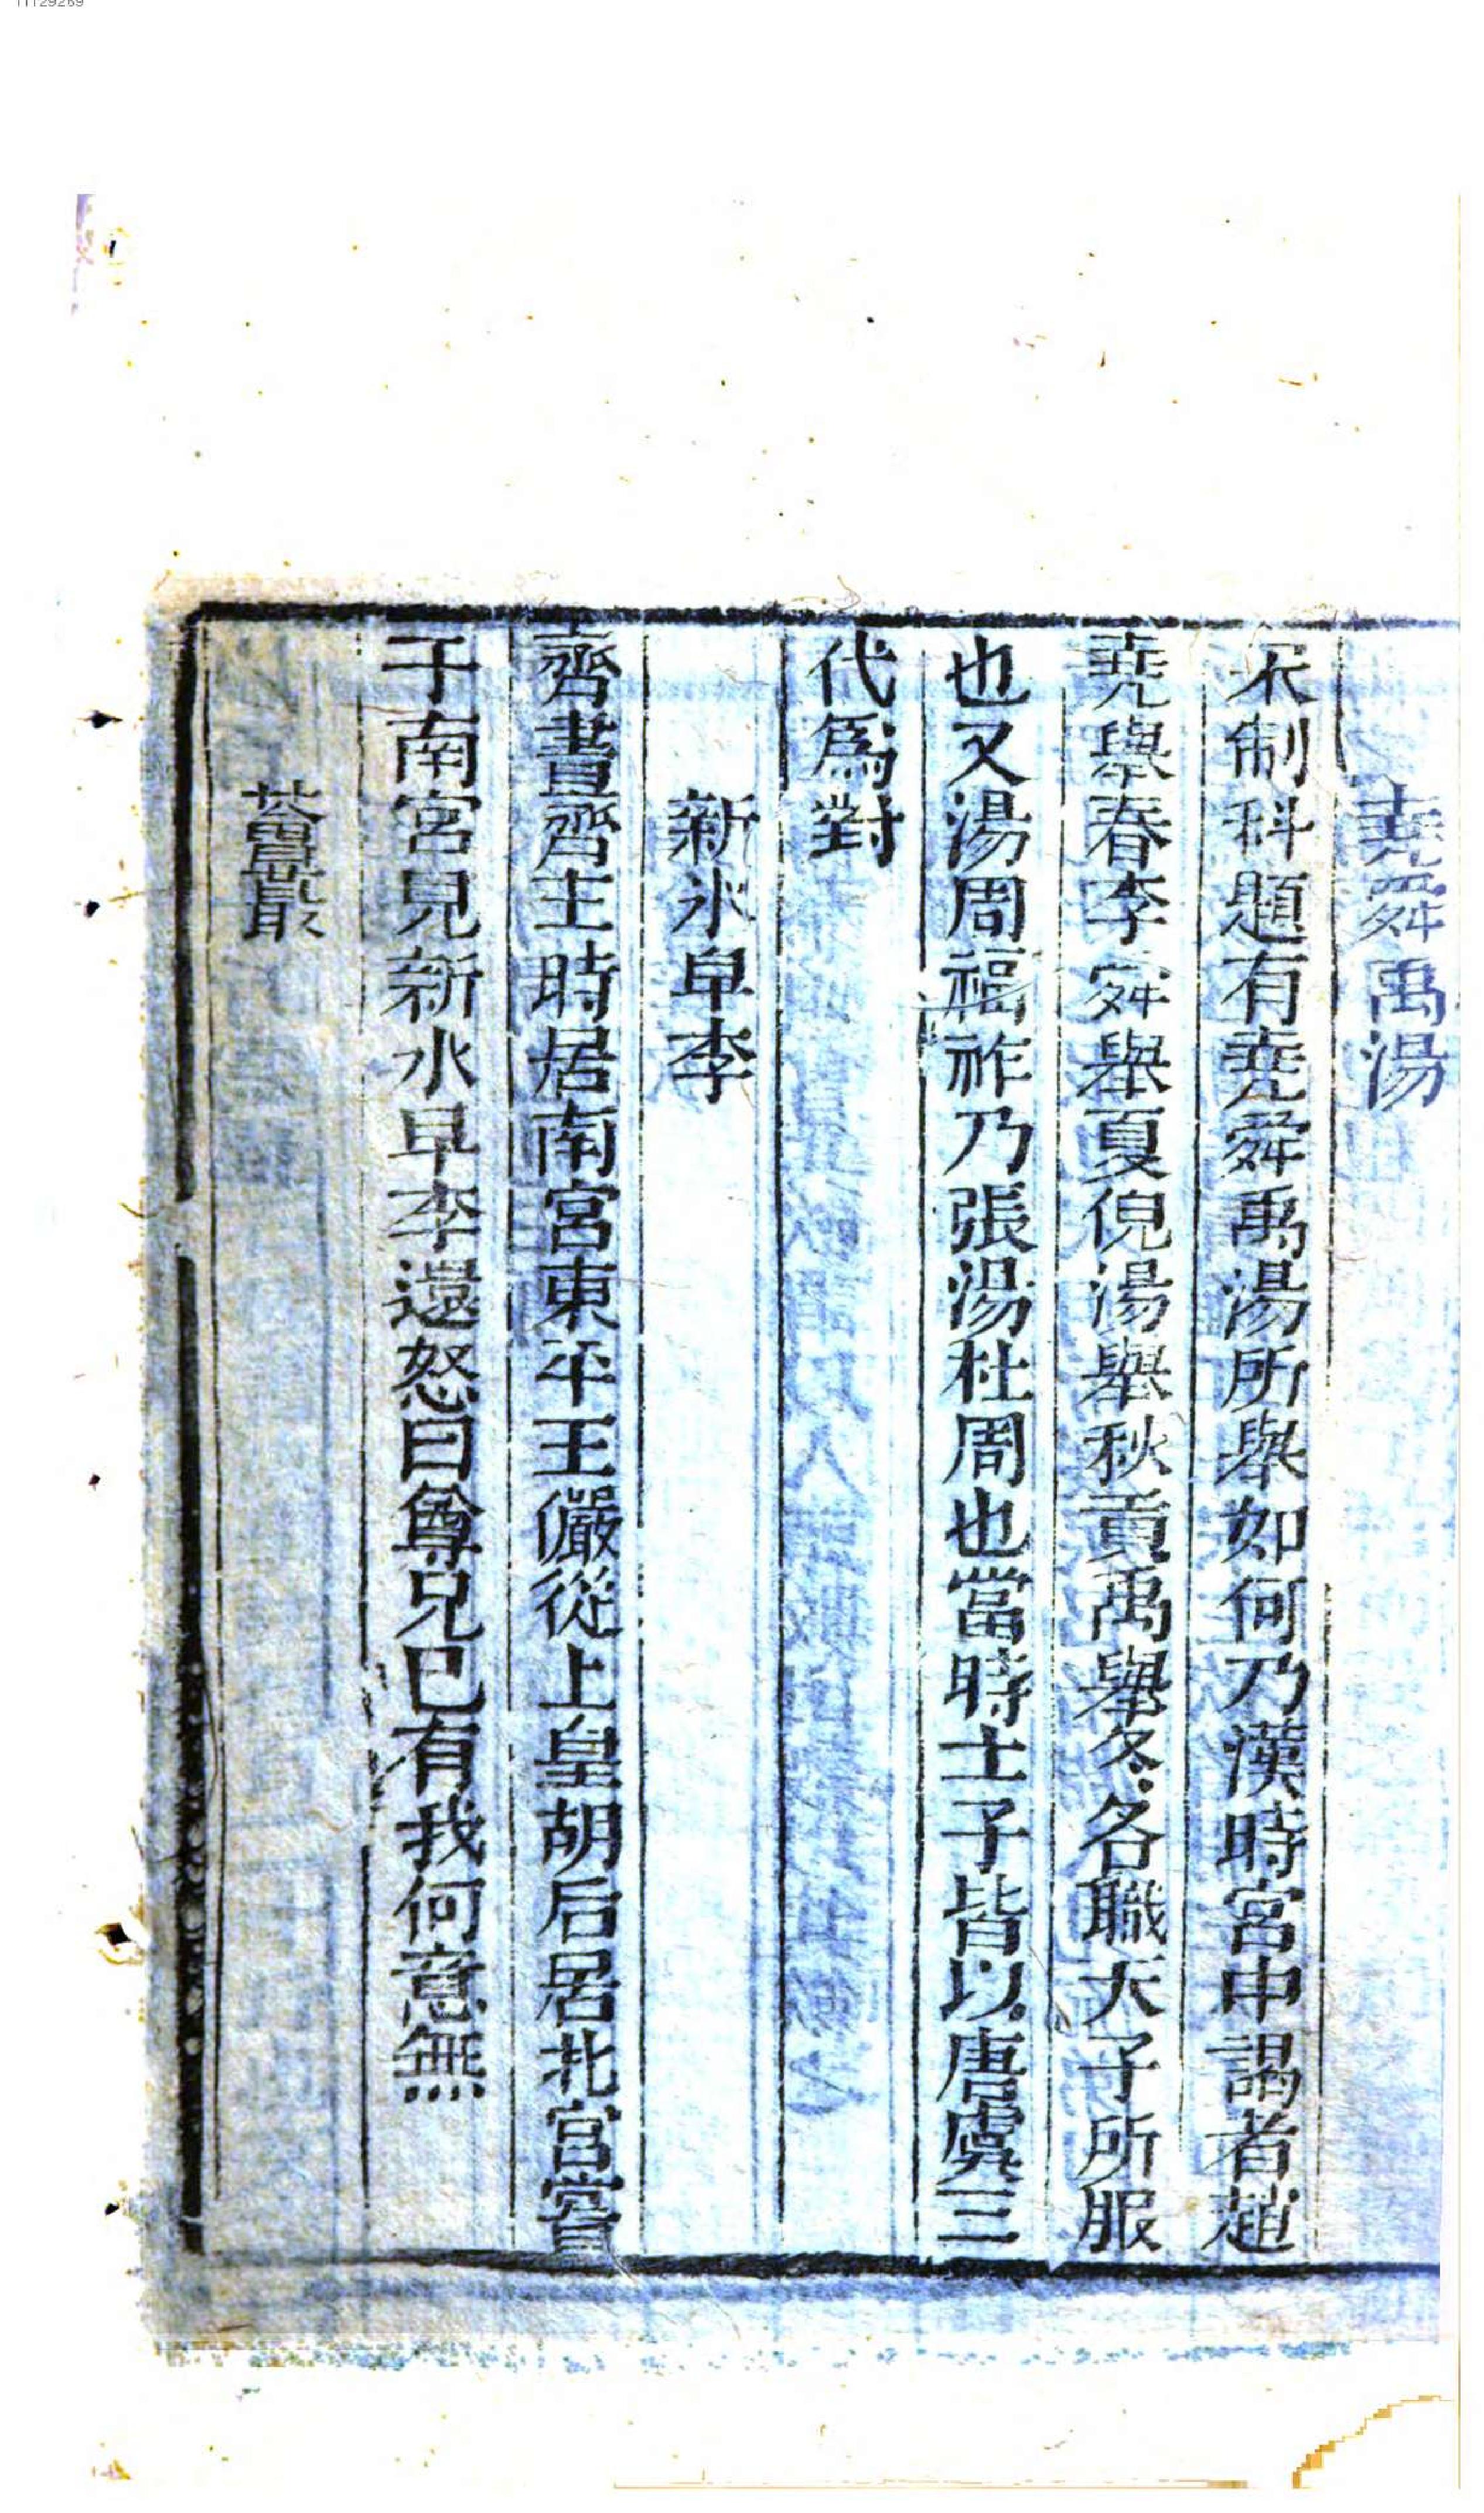 堯舜禹湯
宋制科題有堯舜禹湯所舉如何乃漢時宮中謁者趙
堯舉春李舜舉夏倪湯舉秋貢禹舉冬各職天子所服
也又湯周福祚乃張湯杜周也當時士子皆以唐虞三
代爲對
新氷早李
齊書齊主時居南宮東平王儼從上皇胡后居北宫嘗
于南宮見新水早李還怒曰尊兄已有我何意無